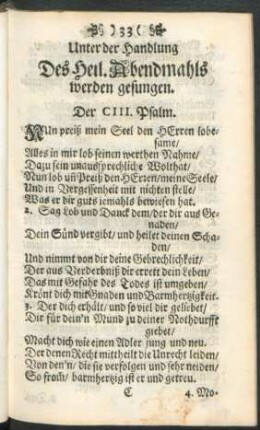 )33(
Unter der Handlung
Des Heil. Abendmahls
werden gesungen.
Der CIII. Psalm.
NUn preiß mein Seel den HErren lobe-
same/
Alles in mir lob seinen werthen Nahme/
Dazu sein unaussprechliche Wolthat/
Nun lob uñ Preiß den HErren/meine Seele/
Und in Vergessenheit mit nichten stelle/
Was er dir guts iemahls bewiesen hat.
2. Sag Lob und Danck dem/der dir aus Ge-
naden/
Dein Sünd vergibt/ und heilet deinen Scha-
den/
Und nimmt von dir deine Gebrechlichkeit/
Der aus Verderbniß dir errett dein Leben/
Das mit Gefahr des Todes ist umgeben/
Krönt dich mit Gnaden und Barmhertzigkeit.
3. Der dich erhält/ und so viel dir geliebet/
Dir für dein'n Mund zu deiner Nothdurfft
giebet/
Macht dich wie einen Adler jung und neu.
Der denen Recht mittheilt die Unrecht leiden/
Von den'n/ die sie verfolgen und sehr neiden/
So from̃/ barmhertzig ist er und getreu.
C 4. Mo-